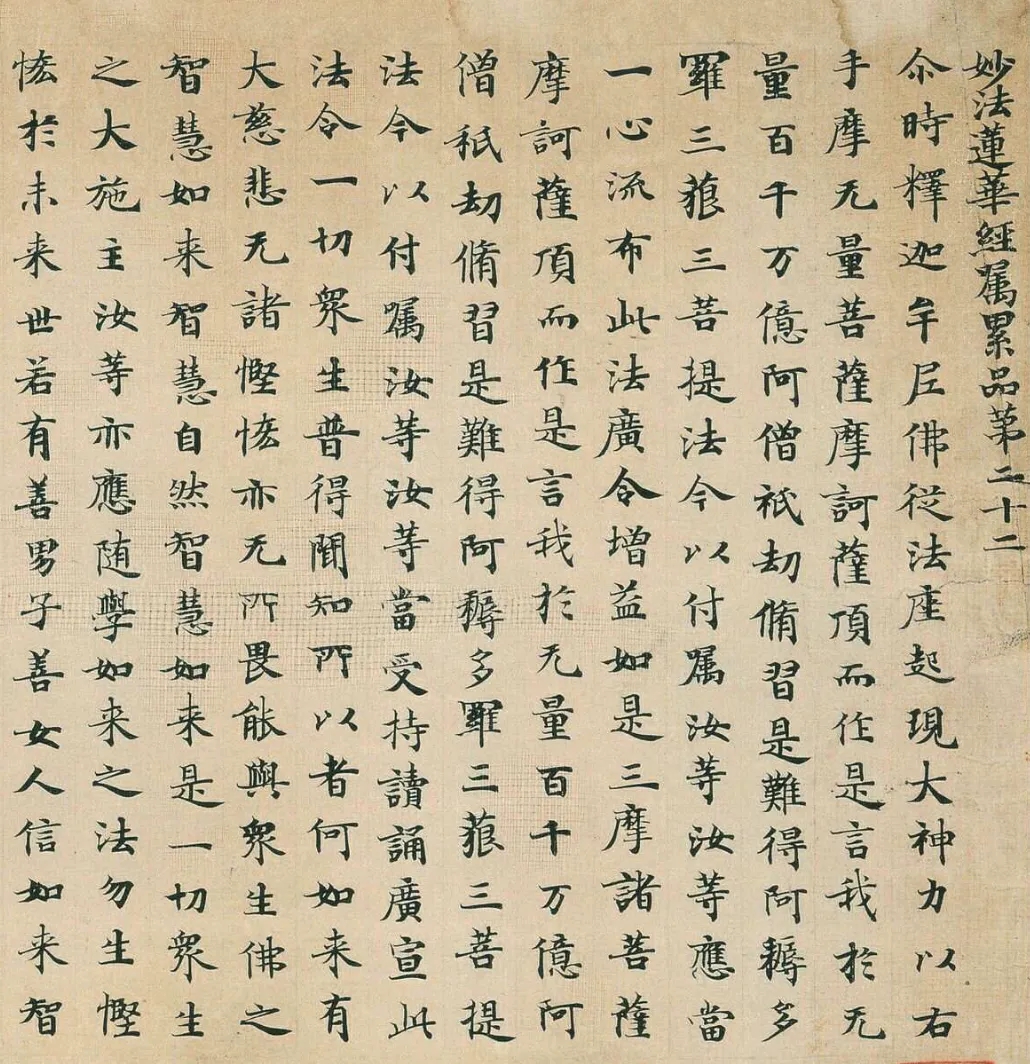 妙法蓮華經嘱累品第二十二
尒時釋迦牟尼佛從法座起現大神力以右
手摩无量菩薩摩訶薩頂而作是言我於无
量百千万億阿僧祇劫脩習是難得阿耨多
羅三藐三菩提法今以付嘱汝等汝等應當
一心流布此法廣令增益如是三摩諸菩薩
摩訶薩頂而作是言我於无量百千万億阿
僧祇劫脩習是難得阿耨多羅三藐三菩提
法今以付嘱汝等汝等當受持讀誦廣宣此
法令一切衆生普得聞知所以者何如来有
大慈悲无諸慳悋亦无所畏能與衆生佛之
智慧如来智慧自然智慧如来是一切衆生
之大施主汝等亦應随學如来之法勿生慳
悋於未来世若有善男子善女人信如来智